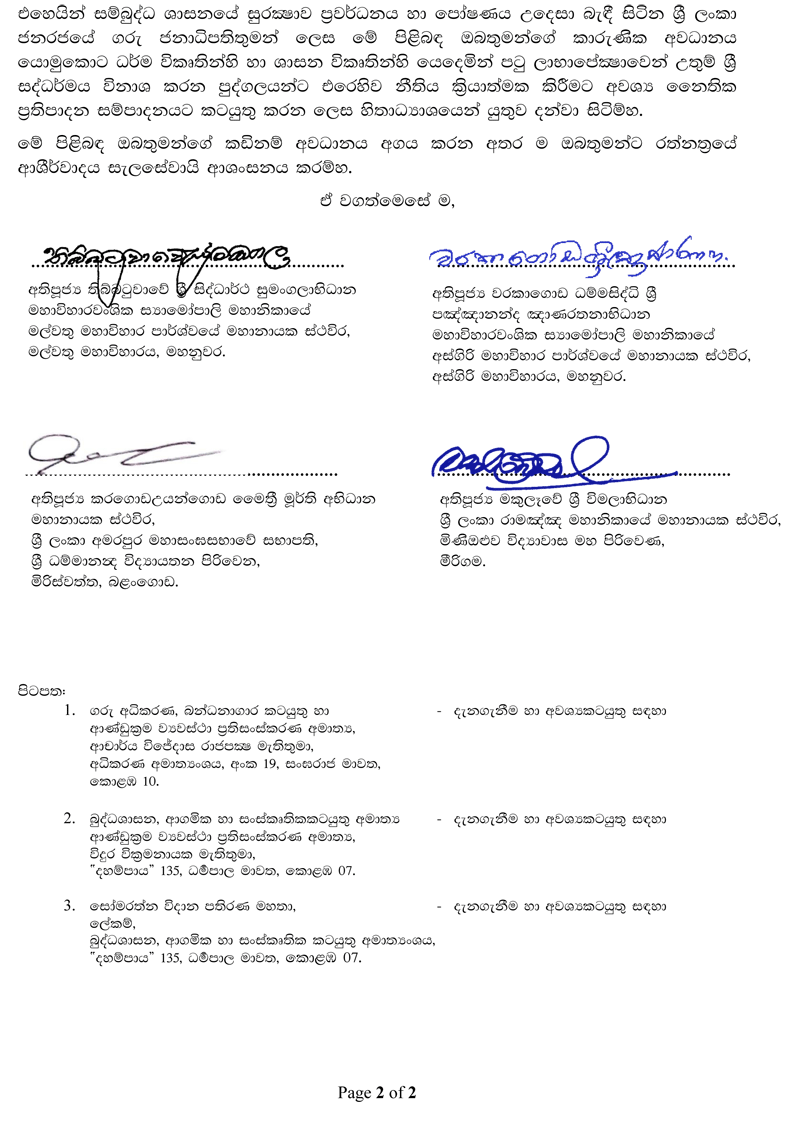 එහෙයින් සම්බුද්ධ ශාසනයේ සුරක්‍ෂාව ප්‍රවර්ධනය හා පෝෂණය උදෙසා බැඳී සිටින ශ්‍රී ලංකා
ජනරජයේ ගරු ජනාධිපතිතුමන් ලෙස මේ පිළිබඳ ඔබතුමන්ගේ කාරුණික අවධානය
යොමුකොට ධර්ම විකෘතින්හි හා ශාසන විකෘතින්හි යෙදෙමින් පටු ලාභාපේක්‍ෂාවෙන් උතුම් ශ්‍රී
සද්ධර්මය විනාශ කරන පුද්ගලයන්ට එරෙහිව නීතිය ක්‍රියාත්මක කිරීමට අවශ්‍ය නෛතික
ප්‍රතිපාදන සම්පාදනයට කටයුතු කරන ලෙස හිතාධ්‍යාශයෙන් යුතුව දන්වා සිටිම්හ.
මේ පිළිබඳ ඔබතුමන්ගේ කඩිනම් අවධානය අගය කරන අතර ම ඔබතුමන්ට රත්නත්‍රයේ
ආශීර්වාදය සැලසේවායි ආශංසනය කරම්හ.
ඒ වගත්මෙසේ ම,
අතිපූජ්‍ය තිබ්බටුවාවේ ශ්‍රී සිද්ධාර්ථ සුමංගලාභිධාන
මහාවිහාරවංශික ස්‍යාමෝපාලි මහානිකායේ
මල්වතු මහාවිහාර පාර්ශ්වයේ මහානායක ස්ථවිර,
මල්වතු මහාවිහාරය, මහනුවර.
අතිපූජ්‍ය වරකාගොඩ ධම්මසිද්ධි ශ්‍රී
පඤ්ඤානන්ද ඤාණරතනාභිධාන
මහාවිහාරවංශික ස්‍යාමෝපාලි මහානිකායේ
අස්ගිරි මහාවිහාර පාර්ශ්වයේ මහානායක ස්ථවිර,
අස්ගිරි මහාවිහාරය, මහනුවර.
අතිපූජ්‍ය කරගොඩඋයන්ගොඩ මෛත්‍රී මූර්ති අභිධාන
මහානායක ස්ථවිර,
ශ්‍රී ලංකා අමරපුර මහාසංඝසභාවේ සභාපති,
ශ්‍රී ධම්මානන්‍ද විද්‍යායතන පිරිවෙන,
මිරිස්වත්ත, බළංගොඩ.
අතිපූජ්‍ය මකුලෑවේ ශ්‍රී විමලාභිධාන
ශ්‍රී ලංකා රාමඤ්ඤ මහානිකායේ මහානායක ස්ථවිර,
මිණිඔළුව විද්‍යාවාස මහ පිරිවෙණ,
මීරිගම.
පිටපත:
1. ගරු අධිකරණ, බන්ධනාගාර කටයුතු හා - දැනගැනීම හා අවශ්‍යකටයුතු සඳහා
ආණ්ඩුක්‍රම ව්‍යවස්ථා ප්‍රතිසංස්කරණ අමාත්‍ය,
ආචාර්ය විජේදාස රාජපක්‍ෂ මැතිතුමා,
අධිකරණ අමාත්‍යංශය, අංක 19, සංඝරාජ මාවත,
කොළඹ 10.
2. බුද්ධශාසන, ආගමික හා සංස්කෘතිකකටයුතු අමාත්‍ය - දැනගැනීම හා අවශ්‍යකටයුතු සඳහා
ආණ්ඩුක්‍රම ව්‍යවස්ථා ප්‍රතිසංස්කරණ අමාත්‍ය,
විදුර වික්‍රමනායක මැතිතුමා,
"දහම්පාය" 135, ධර්මපාල මාවත, කොළඹ 07.
3. සෝමරත්න විදාන පතිරණ මහතා, - දැනගැනීම හා අවශ්‍යකටයුතු සඳහා
ලේකම්,
බුද්ධශාසන, ආගමික හා සංස්කෘතික කටයුතු අමාත්‍යංශය,
"දහම්පාය" 135, ධර්මපාල මාවත, කොළඹ 07.
Page 2 of 2